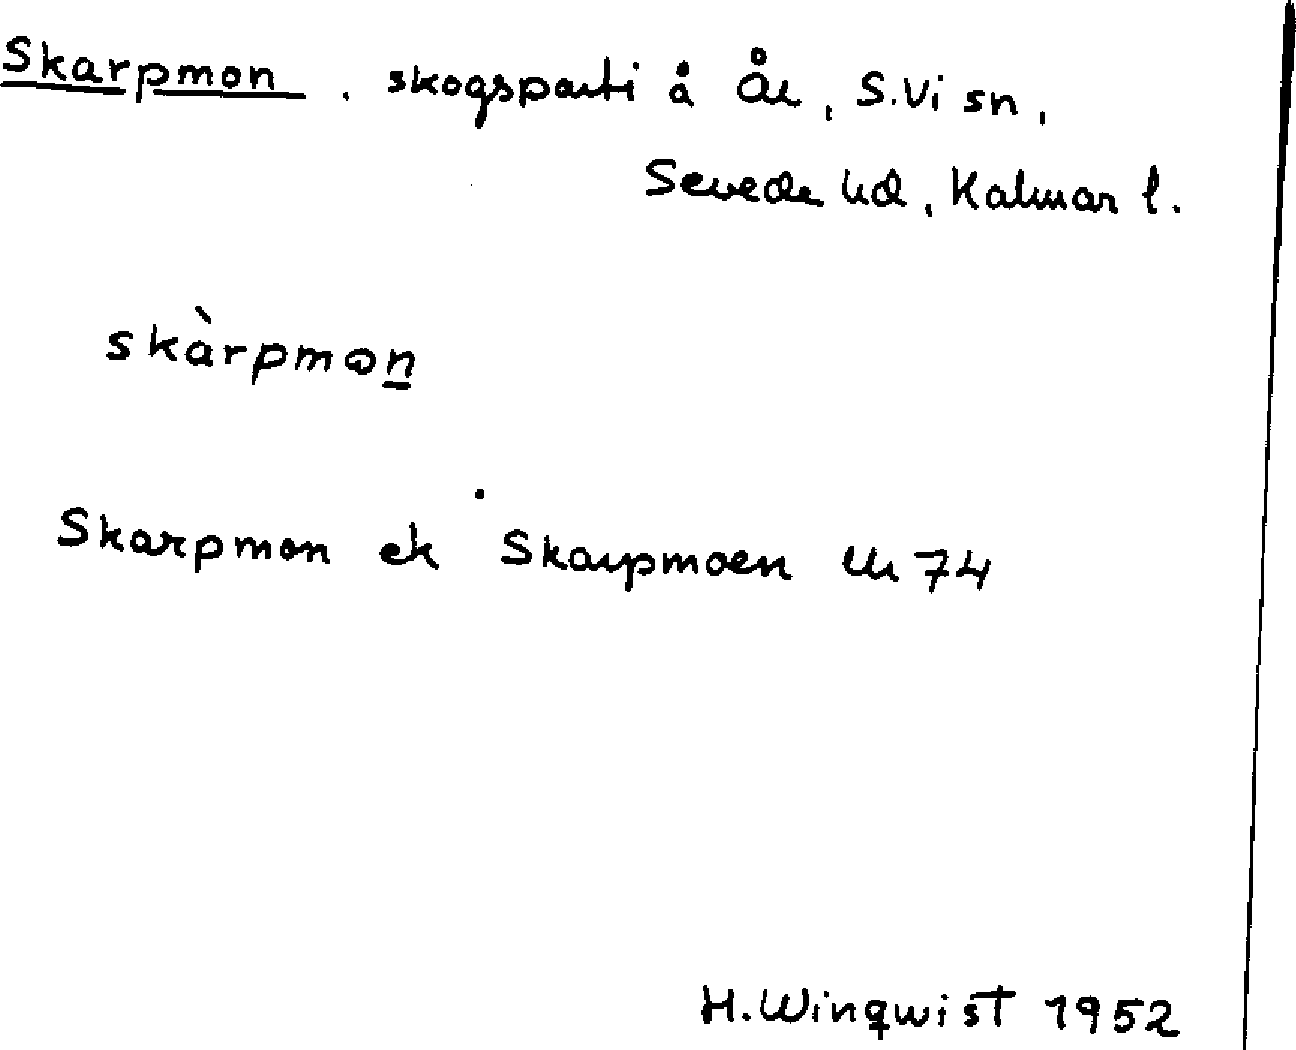 Skarpmon . skogsparti å Åe, S.Vi sn,
Sevede hd, Kalmar l.
skàrpmon
Skarpmon ek Skarpmoen Lu 74
H.Winqwist 1952